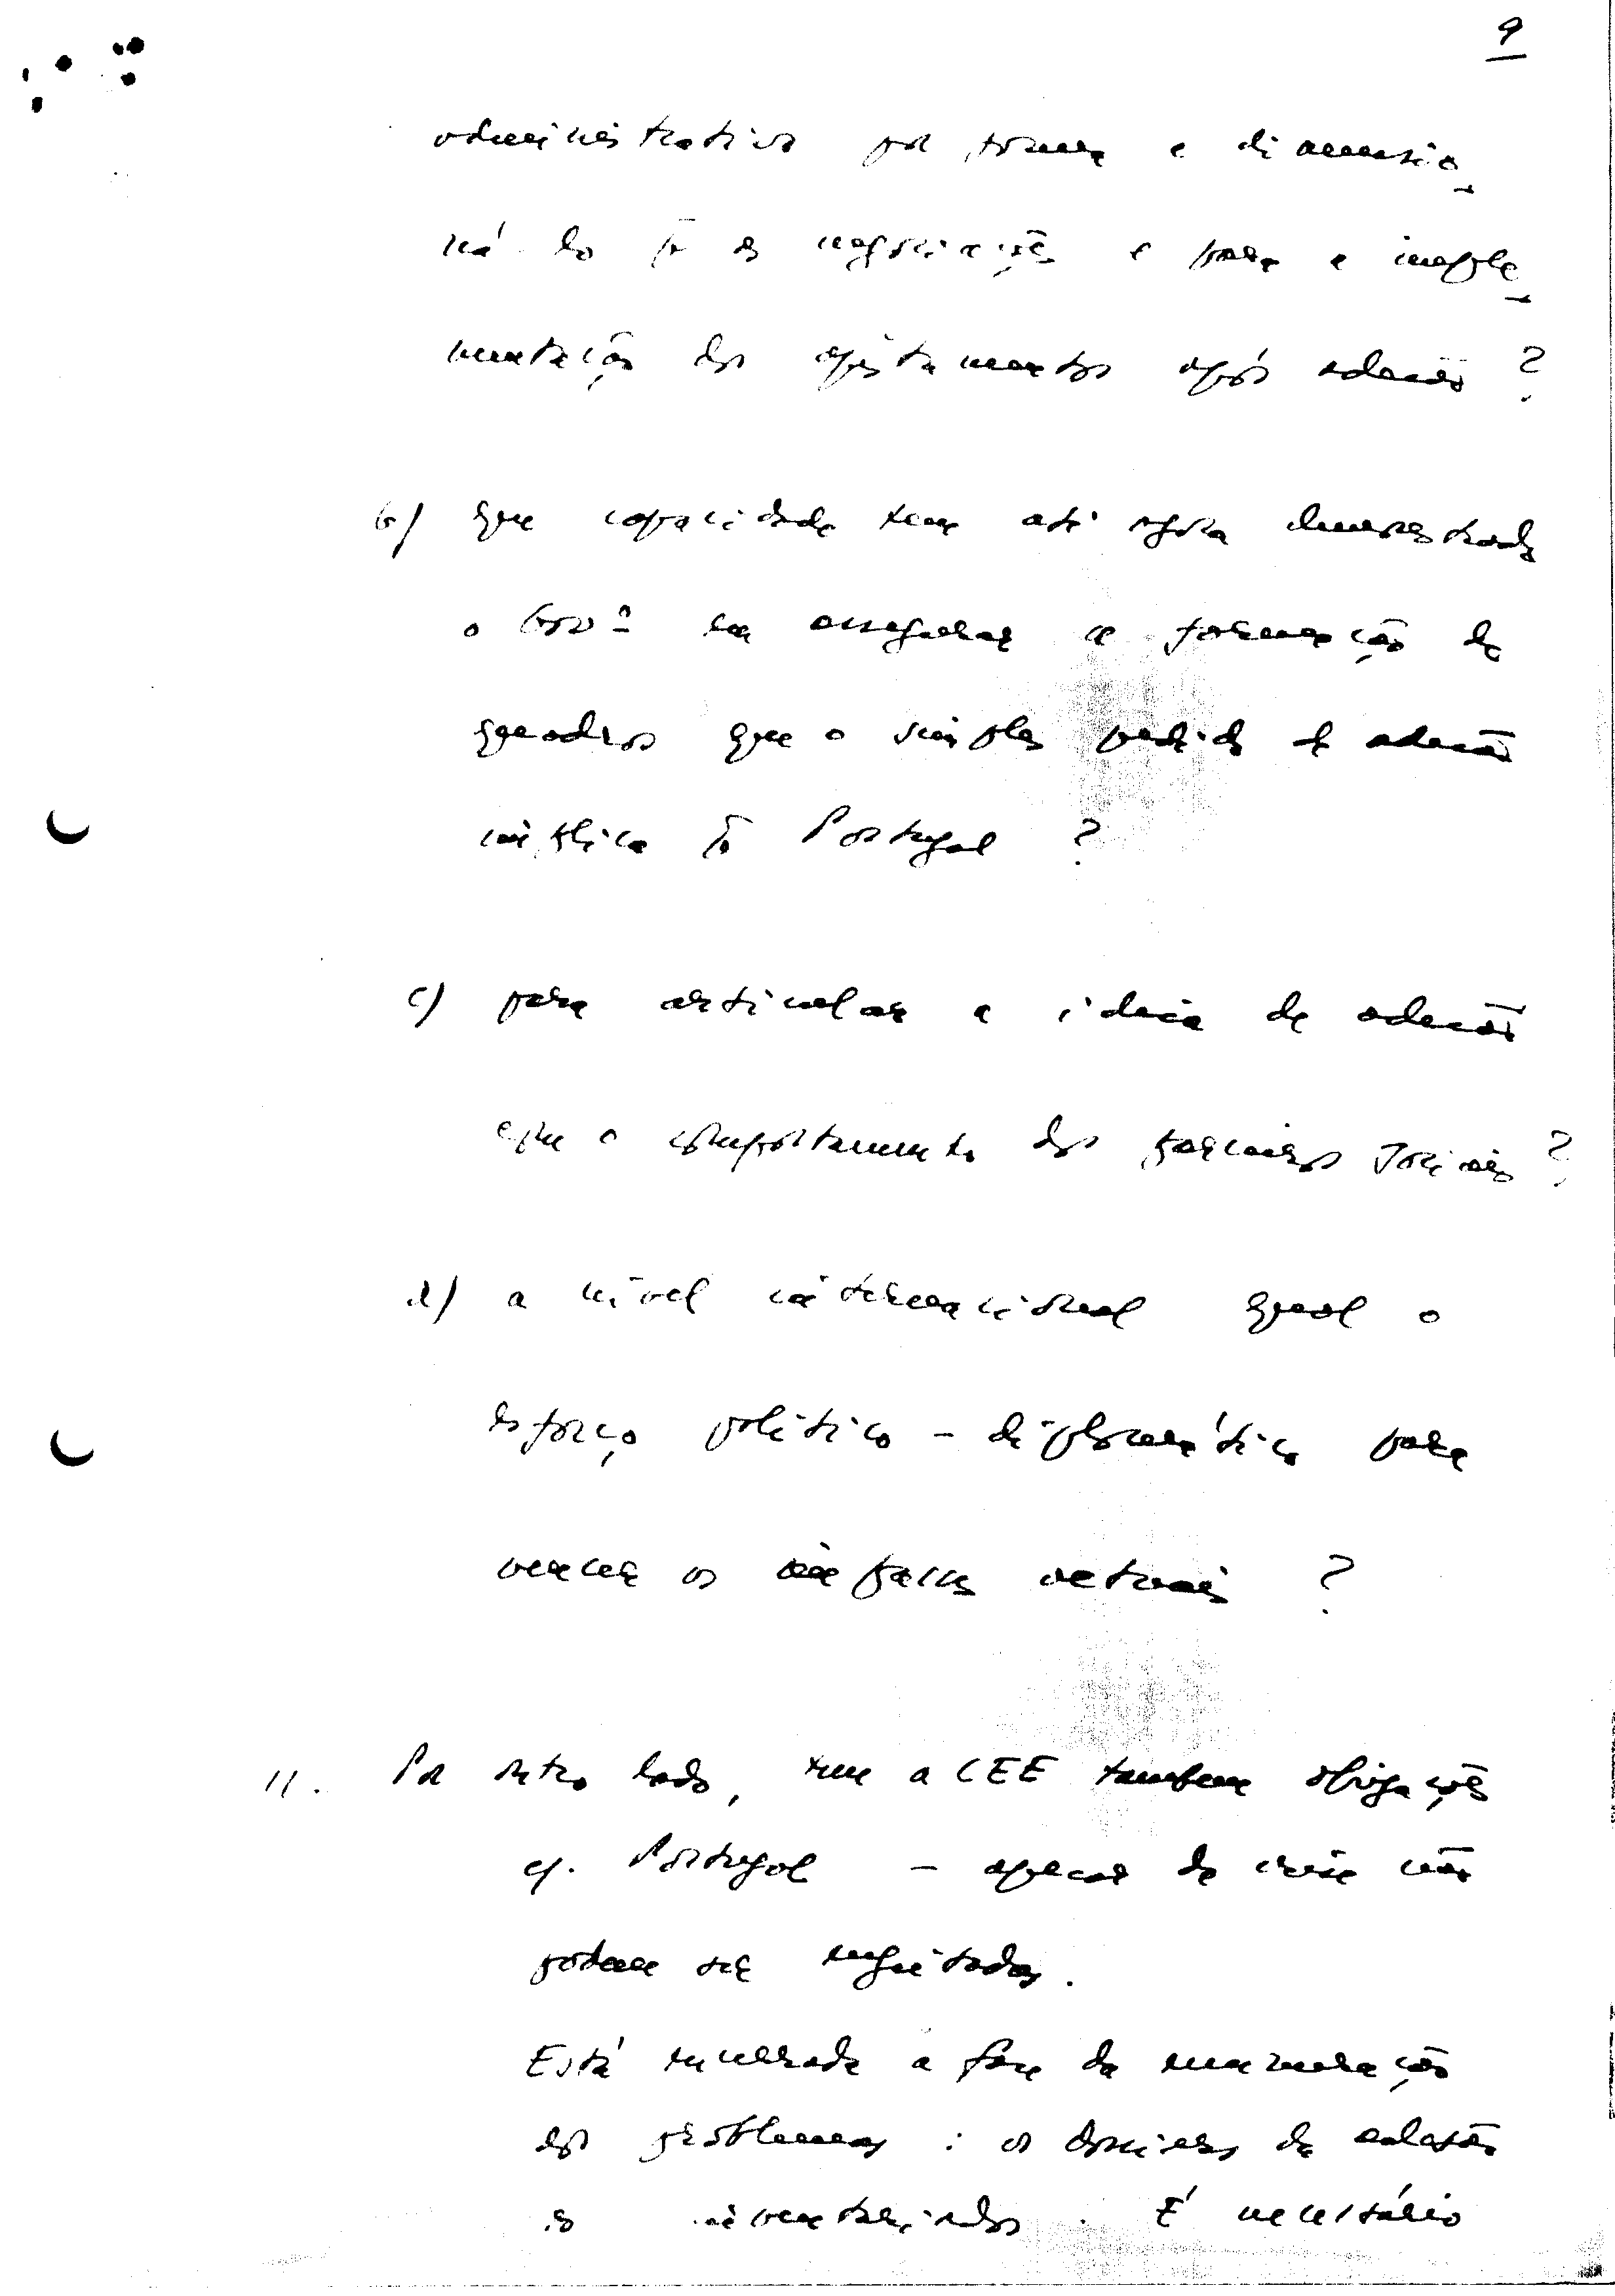 9
administrativo por forma a dimensio_
ná-lo pª as negociações e para a imple_
mentação dos ajustamentos após adesão ?
b) que capacidade tem até agora demonstrado
o Govº em assegurar a formação de
quadros que o simples pedido de adesão
implica pª Portugal ?
c) para articular a ideia de adesão
com o comportamento dos parceiros sociais ?
d) a nível internacional qual o
esforço político - diplomático para
vencer os impasses actuais ?
11. Por outro lado, tem a CEE também obrigações
c/. Portugal - apesar da crise não
podem ser enjeitadas.
Está encerrada a fase da enumeração
dos problemas : os dossiers da adesão
inventariados . É necessário